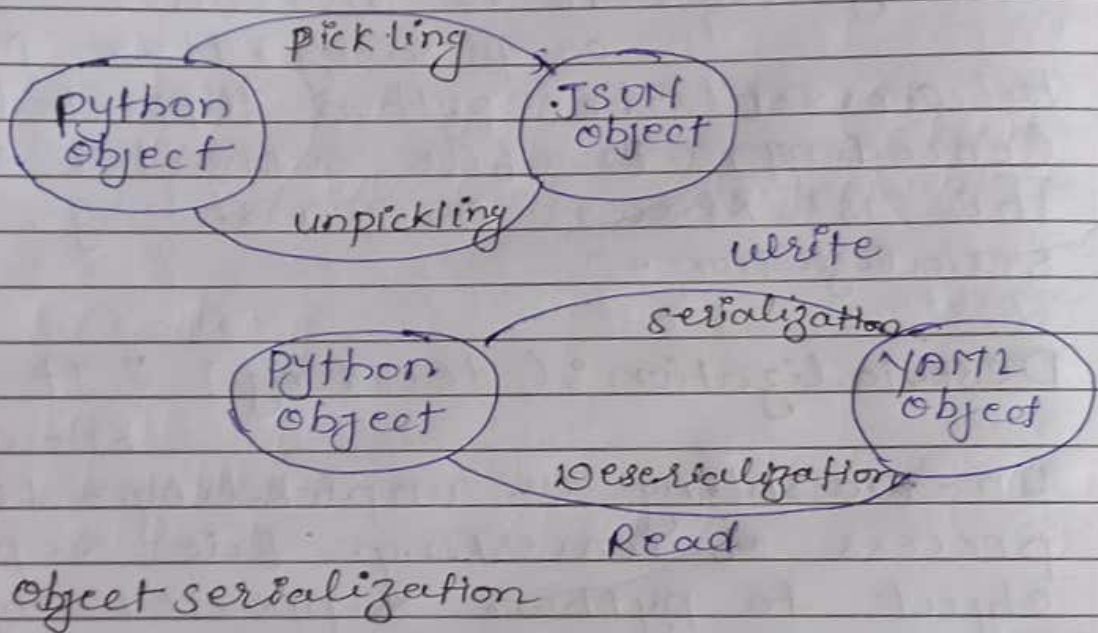 pickling
python
object
.JSON
object
unpickling
write
serialization
Python
object
YAML
object
Deserialization
Read
Object serialization